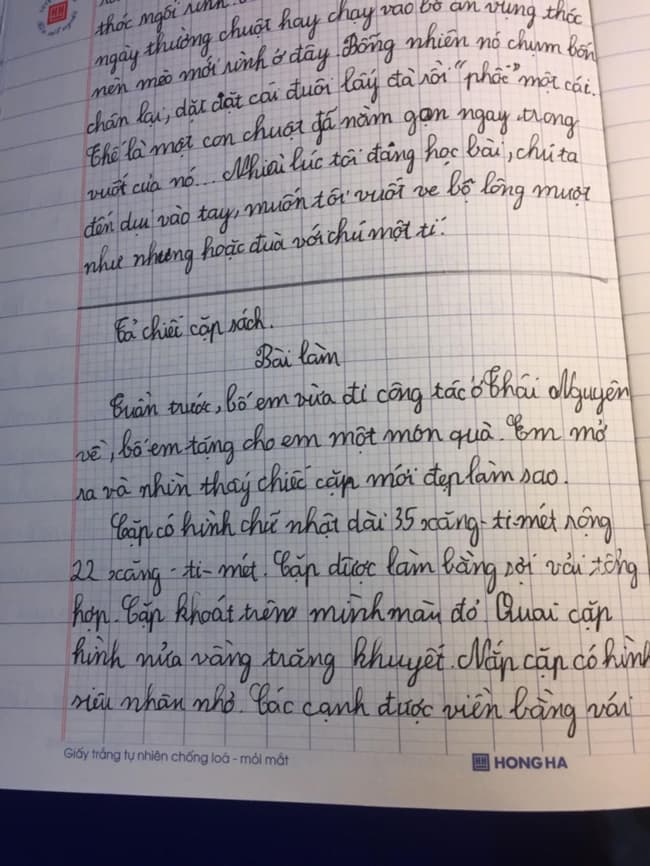 thóc ngồi rình
ngày thường chuột hay chạy vào bồ ăn vụng thóc
nên mèo mới rình ở đây. Bống nhiên nó chụm bốn
chân lại, dặt đặt cái đuôi lấy đà rồi "phốc" một cái.
Thế là một con chuột đã nằm gọn ngay trong
vuốt của nó... Nhiều lúc tôi đang học bài, chú ta
đến dụi vào tay, muốn tôi vuốt ve bộ lông mượt
như nhung hoặc đùa với chú một tí.
Tả chiếc cặp sách.
Bài làm
Tuần trước, bố em vừa đi công tác ở Thái Nguyên
về, bố em tặng cho em một món quà. Em mở
ra và nhìn thấy chiếc cặp mới đẹp làm sao.
Cặp có hình chữ nhật dài 35 xăng-ti-mét rộng
22 xăng-ti-mét. Cặp được làm bằng sợi vải tổng
hợp. Cặp khoát trêm mình màu đỏ. Quai cặp
hình nửa vầng trăng khuyết. Nắp cặp có hình
siêu nhân nhỏ. Các cạnh được viền bằng vải
Giấy trắng tự nhiên chống loá - mỏi mắt
HH HONG HA